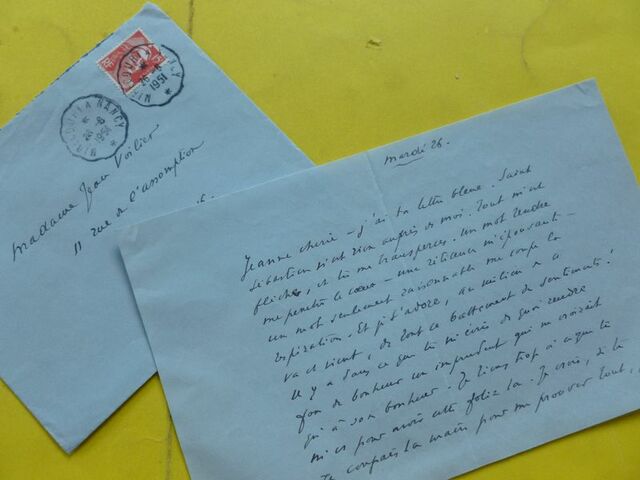 MIRECOURT A NANCY
26-6
1951
MIRECOURT A NANCY
26-6
1951
madame Jean Voilier
11 rue de l'assomption
mardi 26.
Jeanne cherie - j'ai ta lettre bleue. Saint
Sébastien n'est rien auprès de moi. Tout m'est
fleches, et tu me transperces. Un mot tendre
me penètre le coeur - une réticence m'épouvante -
un mot seulement raisonnable me coupe la
respiration. Et je t'adore, au milieu de ce
va et vient, de tout ce battement de sentiments!
Il y a dans ce que tu m'écris de quoi rendre
fou de bonheur un imprudent qui se croirait
à son bonheur. Je tiens trop à ce que tu
m'es pour avoir cette folie là. Je crois, si tu
te coupais la main pour me prouver tout,